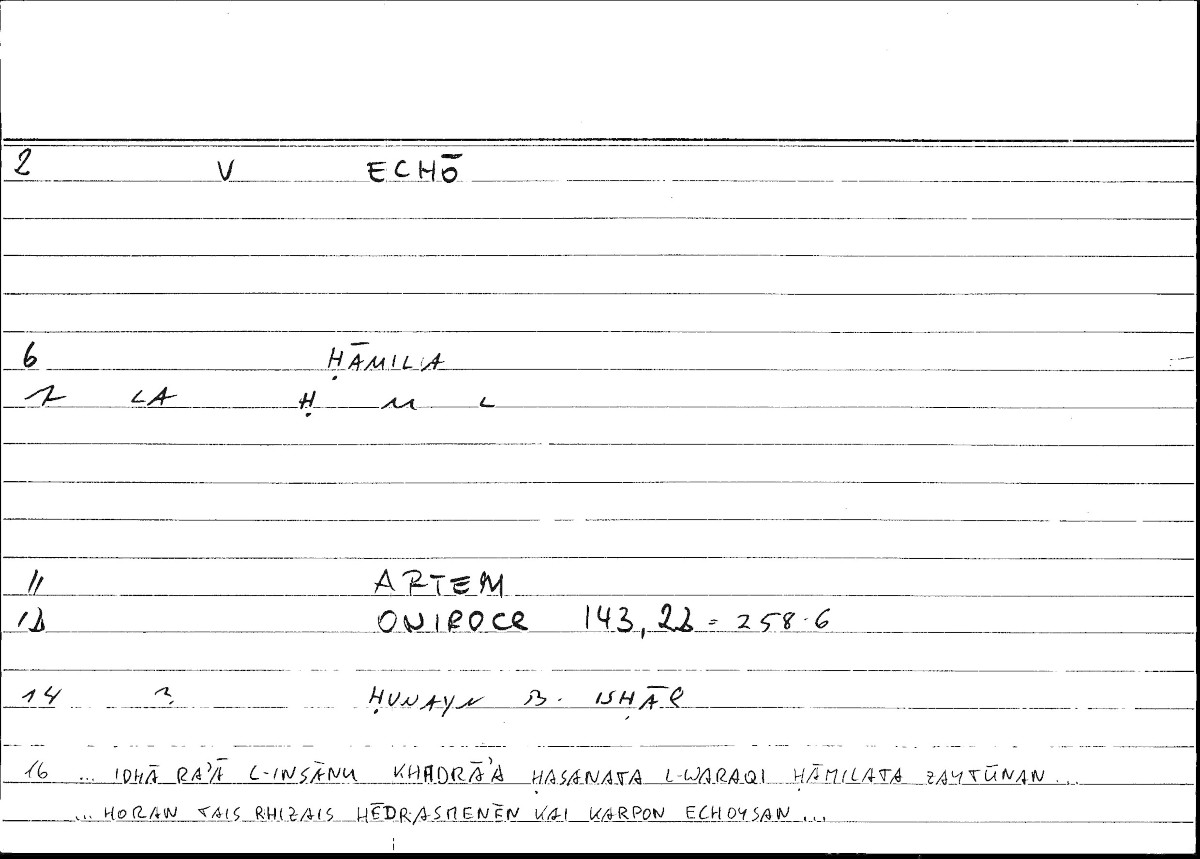 2 V ECHŌ
6 ḤĀMILA
7 LA Ḥ M L
11 ARTEM
12 ONIROCR 143,22 = 258.6
14 2 ḤUNAYN B. ISḤĀQ
16 ... IDHĀ RA'Ā L-INSĀNU KHADRĀ'A ḤASANATA L-WARAQI ḤĀMILATA ZAYTŪNAN ...
... HORAN TAIS RHIZAIS HĒDRASMENĒN KAI KARPON ECHOYSAN ...